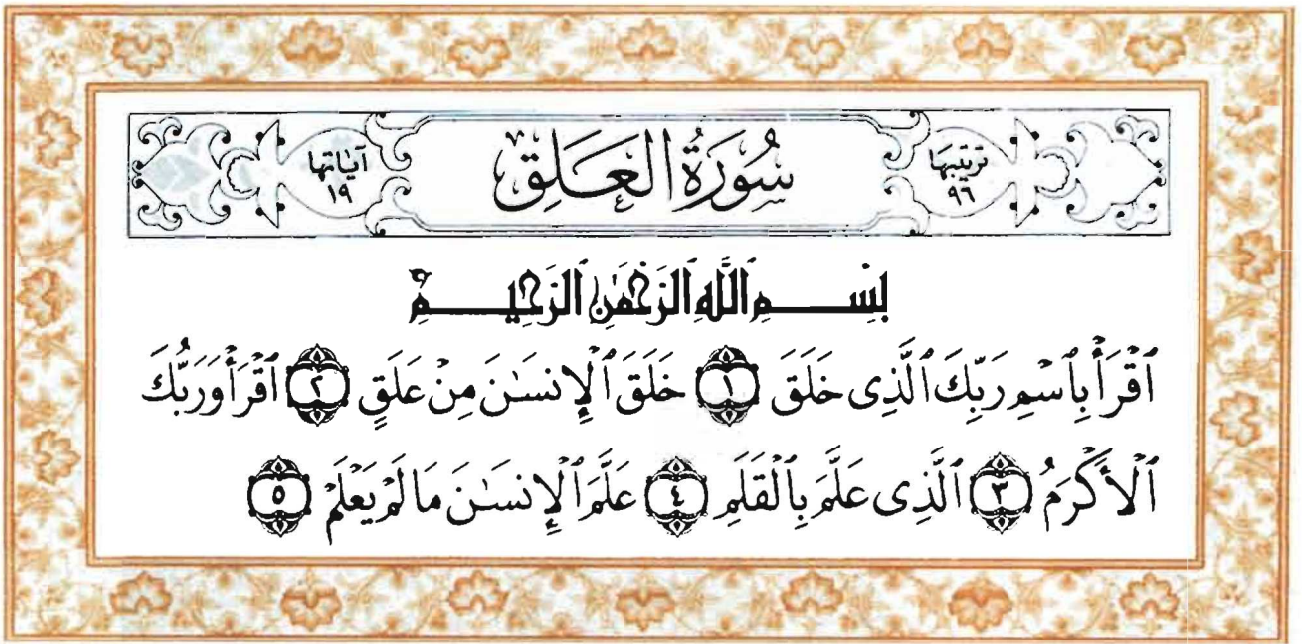 ترتيبها
٩٦
سُورَةُ العَلَقِ
آياتها
١٩
بِسْمِ ٱللَّهِ ٱلرَّحْمَٰنِ ٱلرَّحِيمِ
ٱقْرَأْ بِٱسْمِ رَبِّكَ ٱلَّذِى خَلَقَ ١ خَلَقَ ٱلْإِنسَٰنَ مِنْ عَلَقٍ ٢ ٱقْرَأْ وَرَبُّكَ
ٱلْأَكْرَمُ ٣ ٱلَّذِى عَلَّمَ بِٱلْقَلَمِ ٤ عَلَّمَ ٱلْإِنسَٰنَ مَا لَمْ يَعْلَمْ ٥